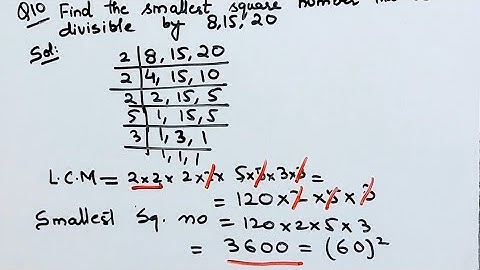 Q10 Find the smallest square number
divisible by 8, 15, 20
Sol:
2 | 8, 15, 20
2 | 4, 15, 10
2 | 2, 15, 5
5 | 1, 15, 5
3 | 1, 3, 1
1, 1, 1
L.C.M = 2×2× 2×2× 5×5×3×3 =
= 120×2×5×3
Smallest Sq. no = 120×2×5×3
= 3600 = (60)²